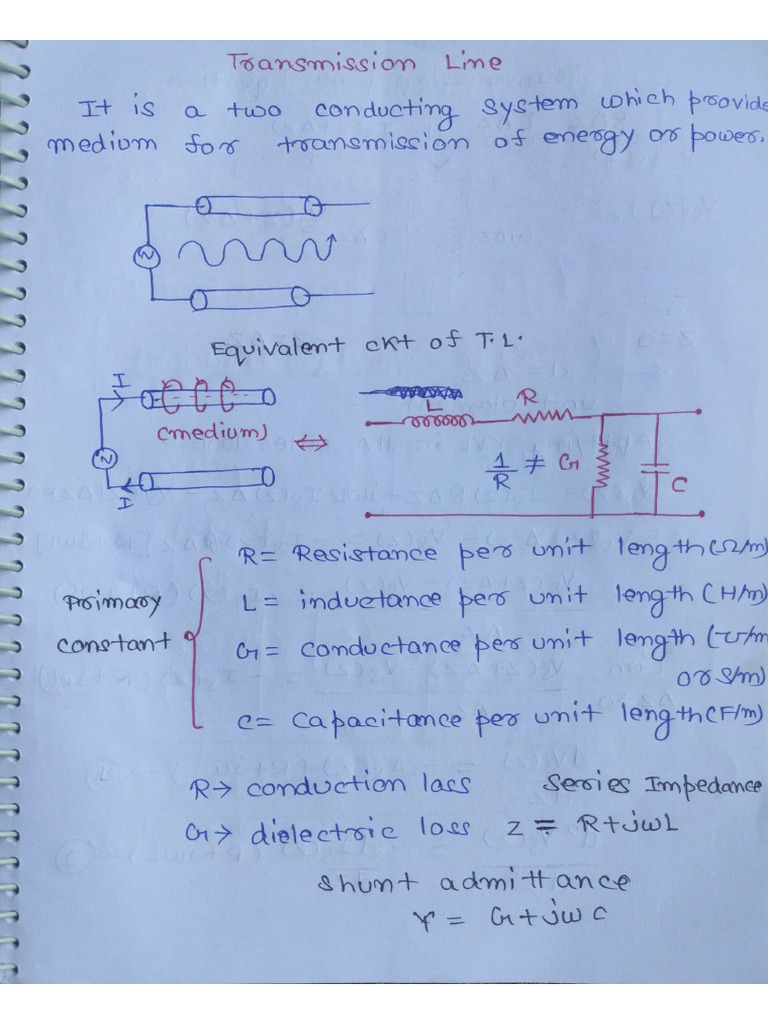 Transmission Line
It is a two conducting system which provide
medium for transmission of energy or power.
Equivalent ckt of T.L.
I
(medium)
I
L
R
1/R ≠ G
C
Primary
constant
R = Resistance per unit length (Ω/m)
L = inductance per unit length (H/m)
G = conductance per unit length (℧/m
or S/m)
C = capacitance per unit length (F/m)
R → conduction lass
Series Impedance
G → dielectric loss
Z = R+jwL
Shunt admittance
Y = G+jwC